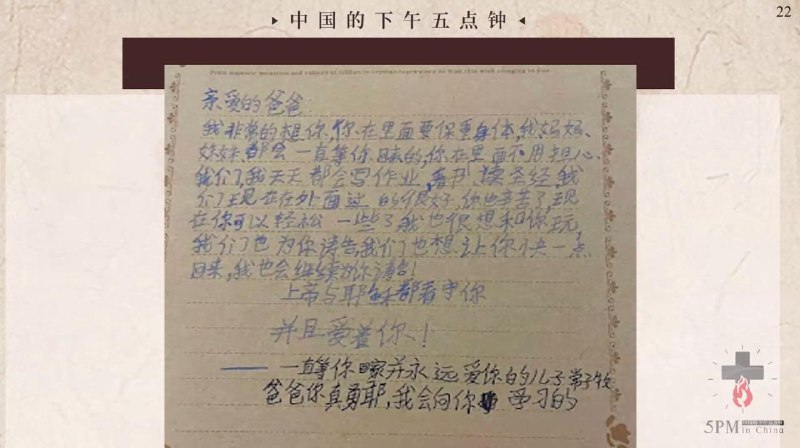 中国的下午五点钟
22
亲爱的爸爸:
我非常的想你,你在里面要保重身体,我妈妈、
妹妹都会一直等你回来的,你在里面不用担心
我们,我天天都会写作业,看书,读圣经,我
们现在在外面过的很好,你也辛苦了,现
在你可以轻松一些了我也很想和你玩,
我们也为你祷告,我们也想让你快一点
回来,我也会继续为你祷告!
上帝与耶稣都看守你
并且爱着你!
——一直等你回家并永远爱你的儿子常子牧
爸爸你真勇耶,我会向你学习的
5PM in China